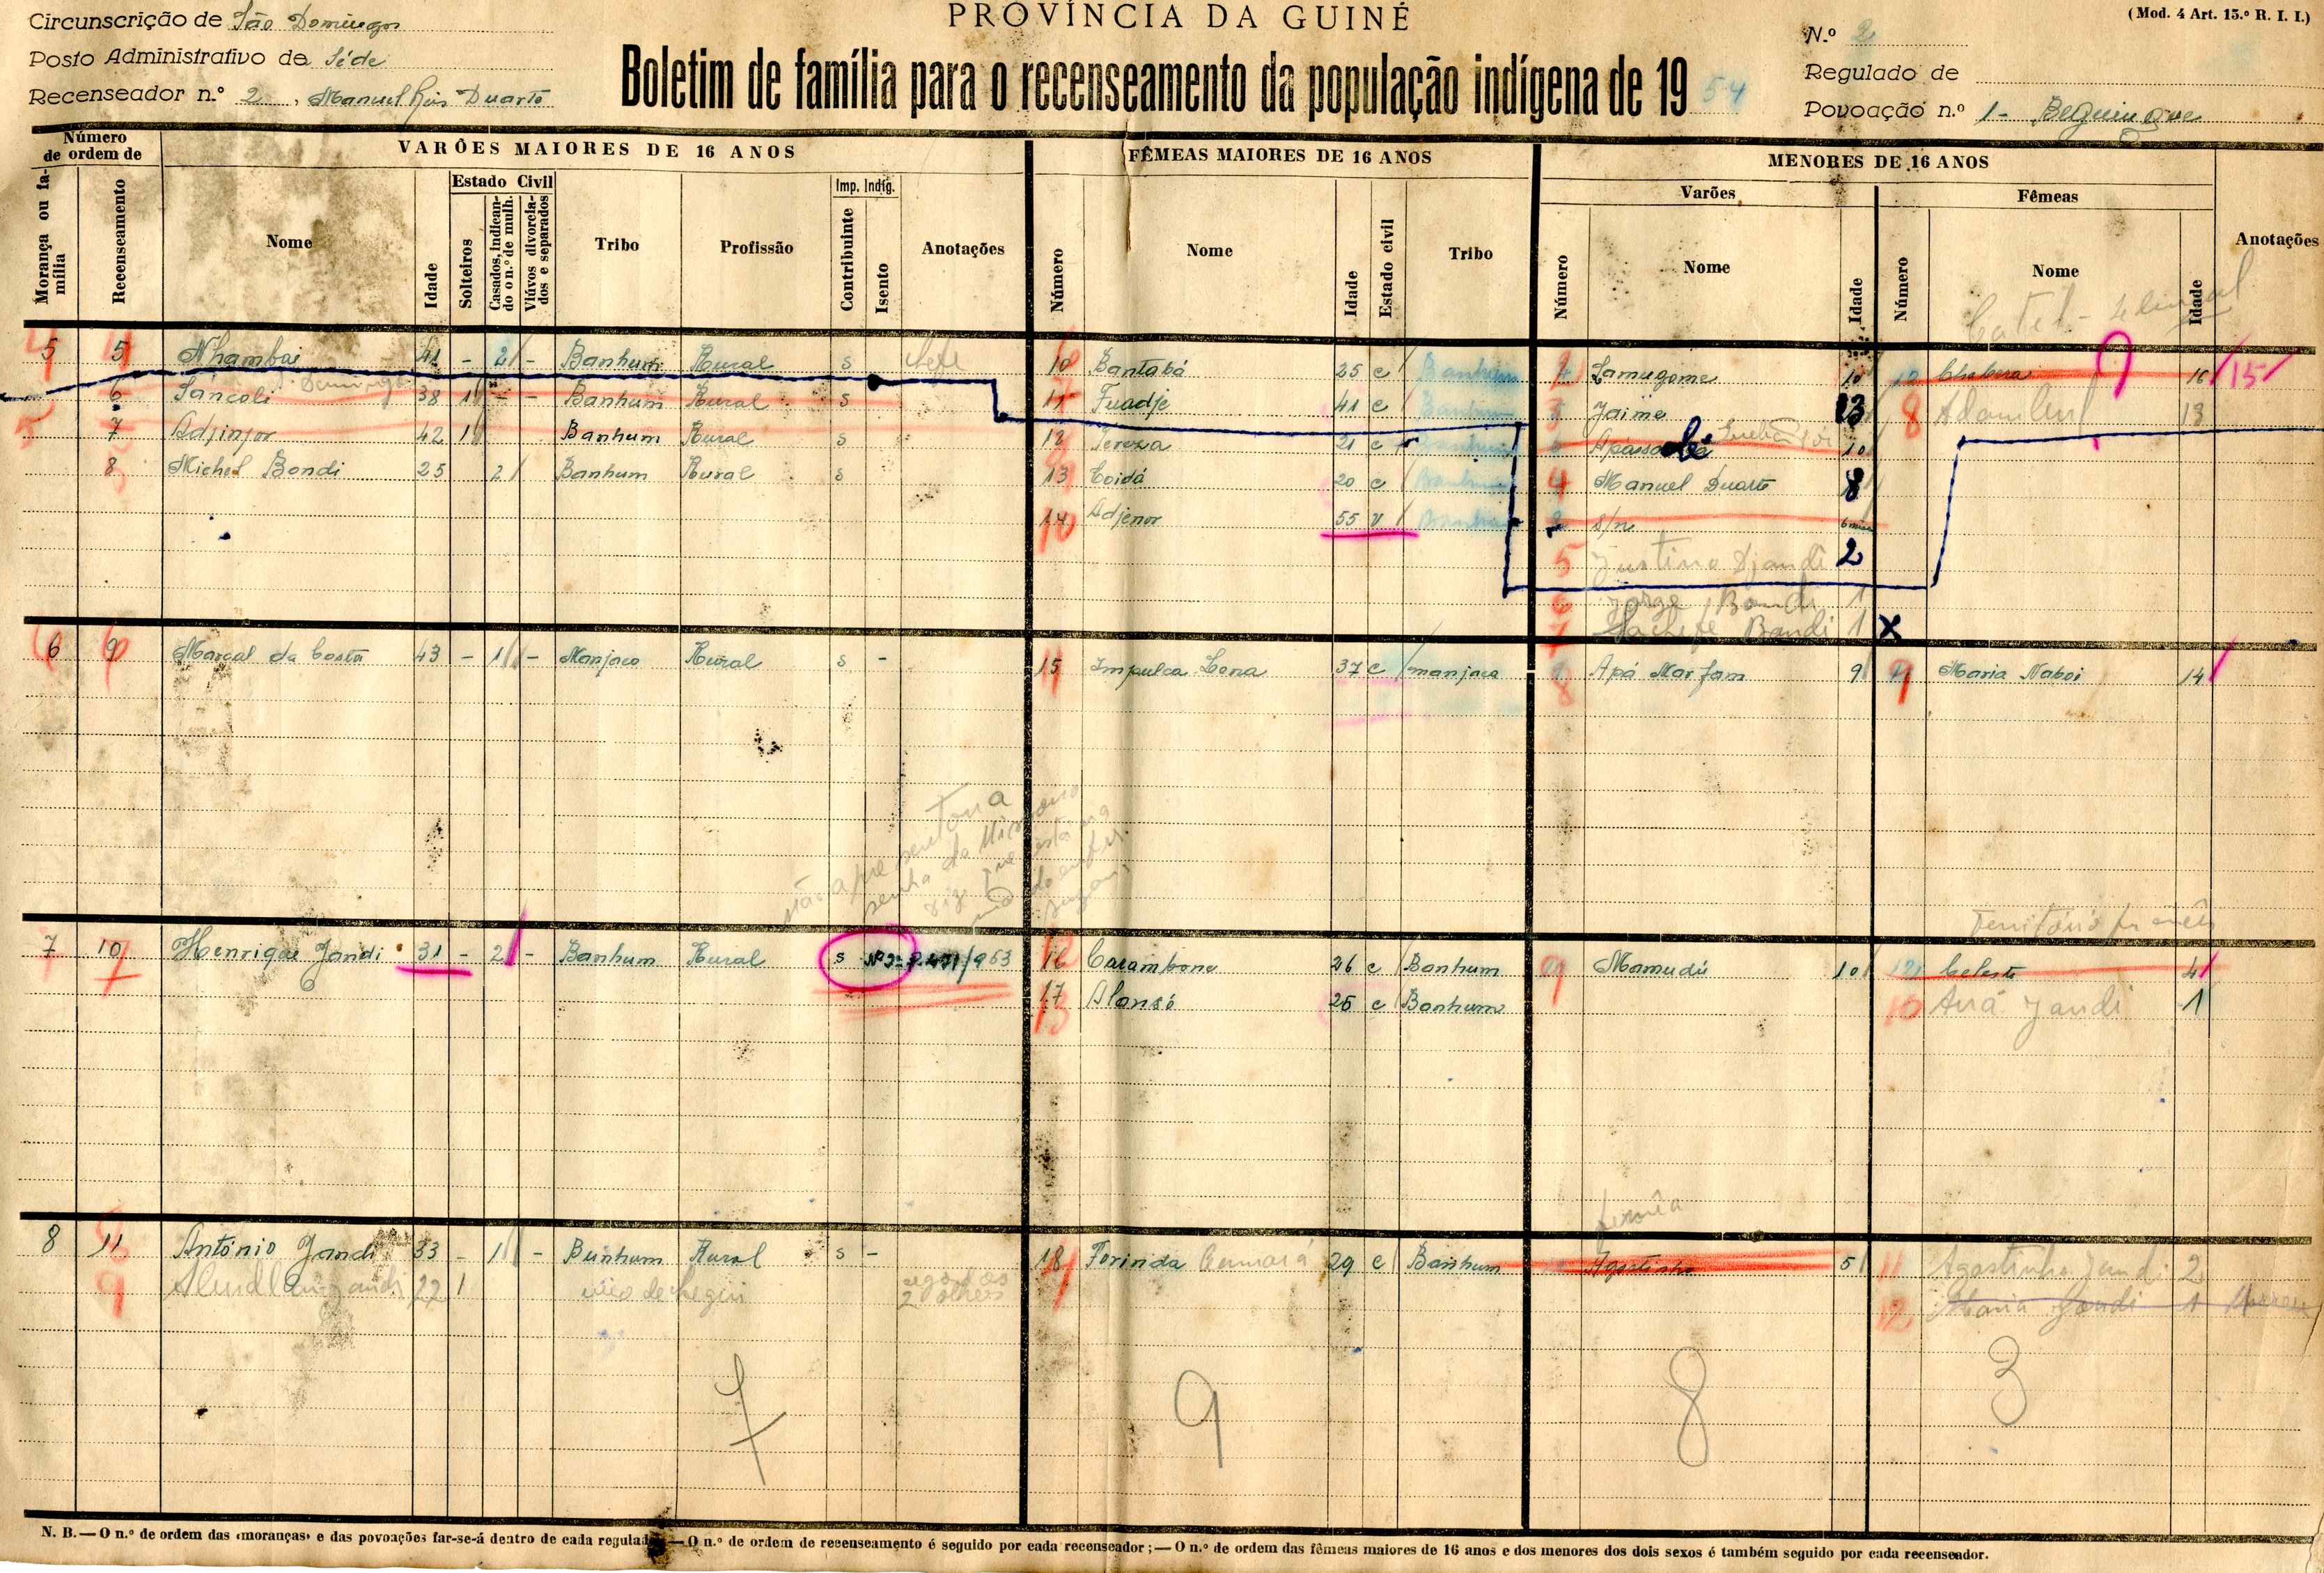 Circunscrição de São Domingos
Posto Administrativo de Séde
Recenseador n.º 2, Manuel Reis Duarte
PROVÍNCIA DA GUINÉ
Boletim de família para o recenseamento da população indígena de 1954
(Mod. 4 Art. 15.º R. I. I.)
N.º 2
Regulado de
Povoação n.º 1- Beguingue
Número de ordem de
VARÕES MAIORES DE 16 ANOS
FÊMEAS MAIORES DE 16 ANOS
MENORES DE 16 ANOS
Morança ou família
Recenseamento
Nome
Idade
Estado Civil
Solteiros
Casados, indicando o n.º de mulh.
Viúvos divorciados e separados
Tribo
Profissão
Imp. Indíg.
Contribuinte
Isento
Anotações
Número
Nome
Idade
Estado civil
Tribo
Varões
Número
Nome
Idade
Fêmeas
Número
Nome
Idade
Anotações
5 5 Nhambai 41 - 2 - Banhum Rural s 10 Bantabá 25 c Banhum Lamugome 10 12 16 15
6 Sáncoli 38 1 - - Banhum Rural s 11 Fuadje 41 c Banhum Jaime 13 8 13
7 Adjinjor 42 1 Banhum Rural s 12 Tereza 21 c Banhum 10
8 Michel Bondi 25 2 Banhum Rural s 13 Coidá 20 c Banhum 4 Manuel Duarte 8
14 Adjenor 55 v Banhum s/n
5 Justino Djandi 2
6 Jorge Bondi 1
7 Bandi 1 x
6 9 Marçal da Costa 43 - 1 - Manjaco Rural s - 15 Impulca Lona 37 c manjaca 8 Apá Marfam 9 9 Maria Naboi 14
não apresentou a
Território francês
7 10 Henrique Jandi 31 - 2 - Banhum Rural s 16 Carambone 26 c Banhum 9 Mamudú 10 Celeste 4
17 Alansó 25 c Banhum 10 Aná Jandi 1
femêa
8 11 António Jandi 33 - 1 - Banhum Rural s - 18 Forinda Camará 29 c Banhum Agostinho 5 11 Agostinha Jandi 2
9 22 1 2 olhos 12 Maria Jandi 1 Morreu
7 9 8 3
N. B. — O n.º de ordem das «moranças» e das povoações far-se-á dentro de cada regulado; — O n.º de ordem de recenseamento é seguido por cada recenseador; — O n.º de ordem das fêmeas maiores de 16 anos e dos menores dos dois sexos é também seguido por cada recenseador.